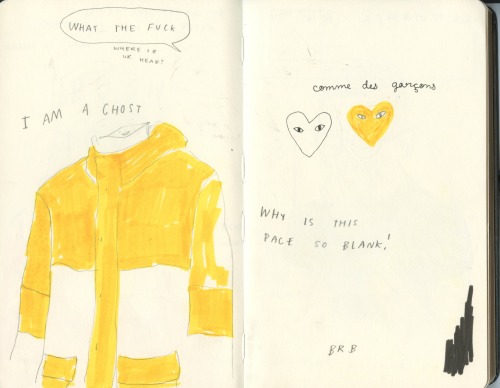 WHAT THE FUCK
WHERE IS
UR HEAD?
I AM A GHOST
comme des garçons
WHY IS THIS
PAGE SO BLANK!
BRB